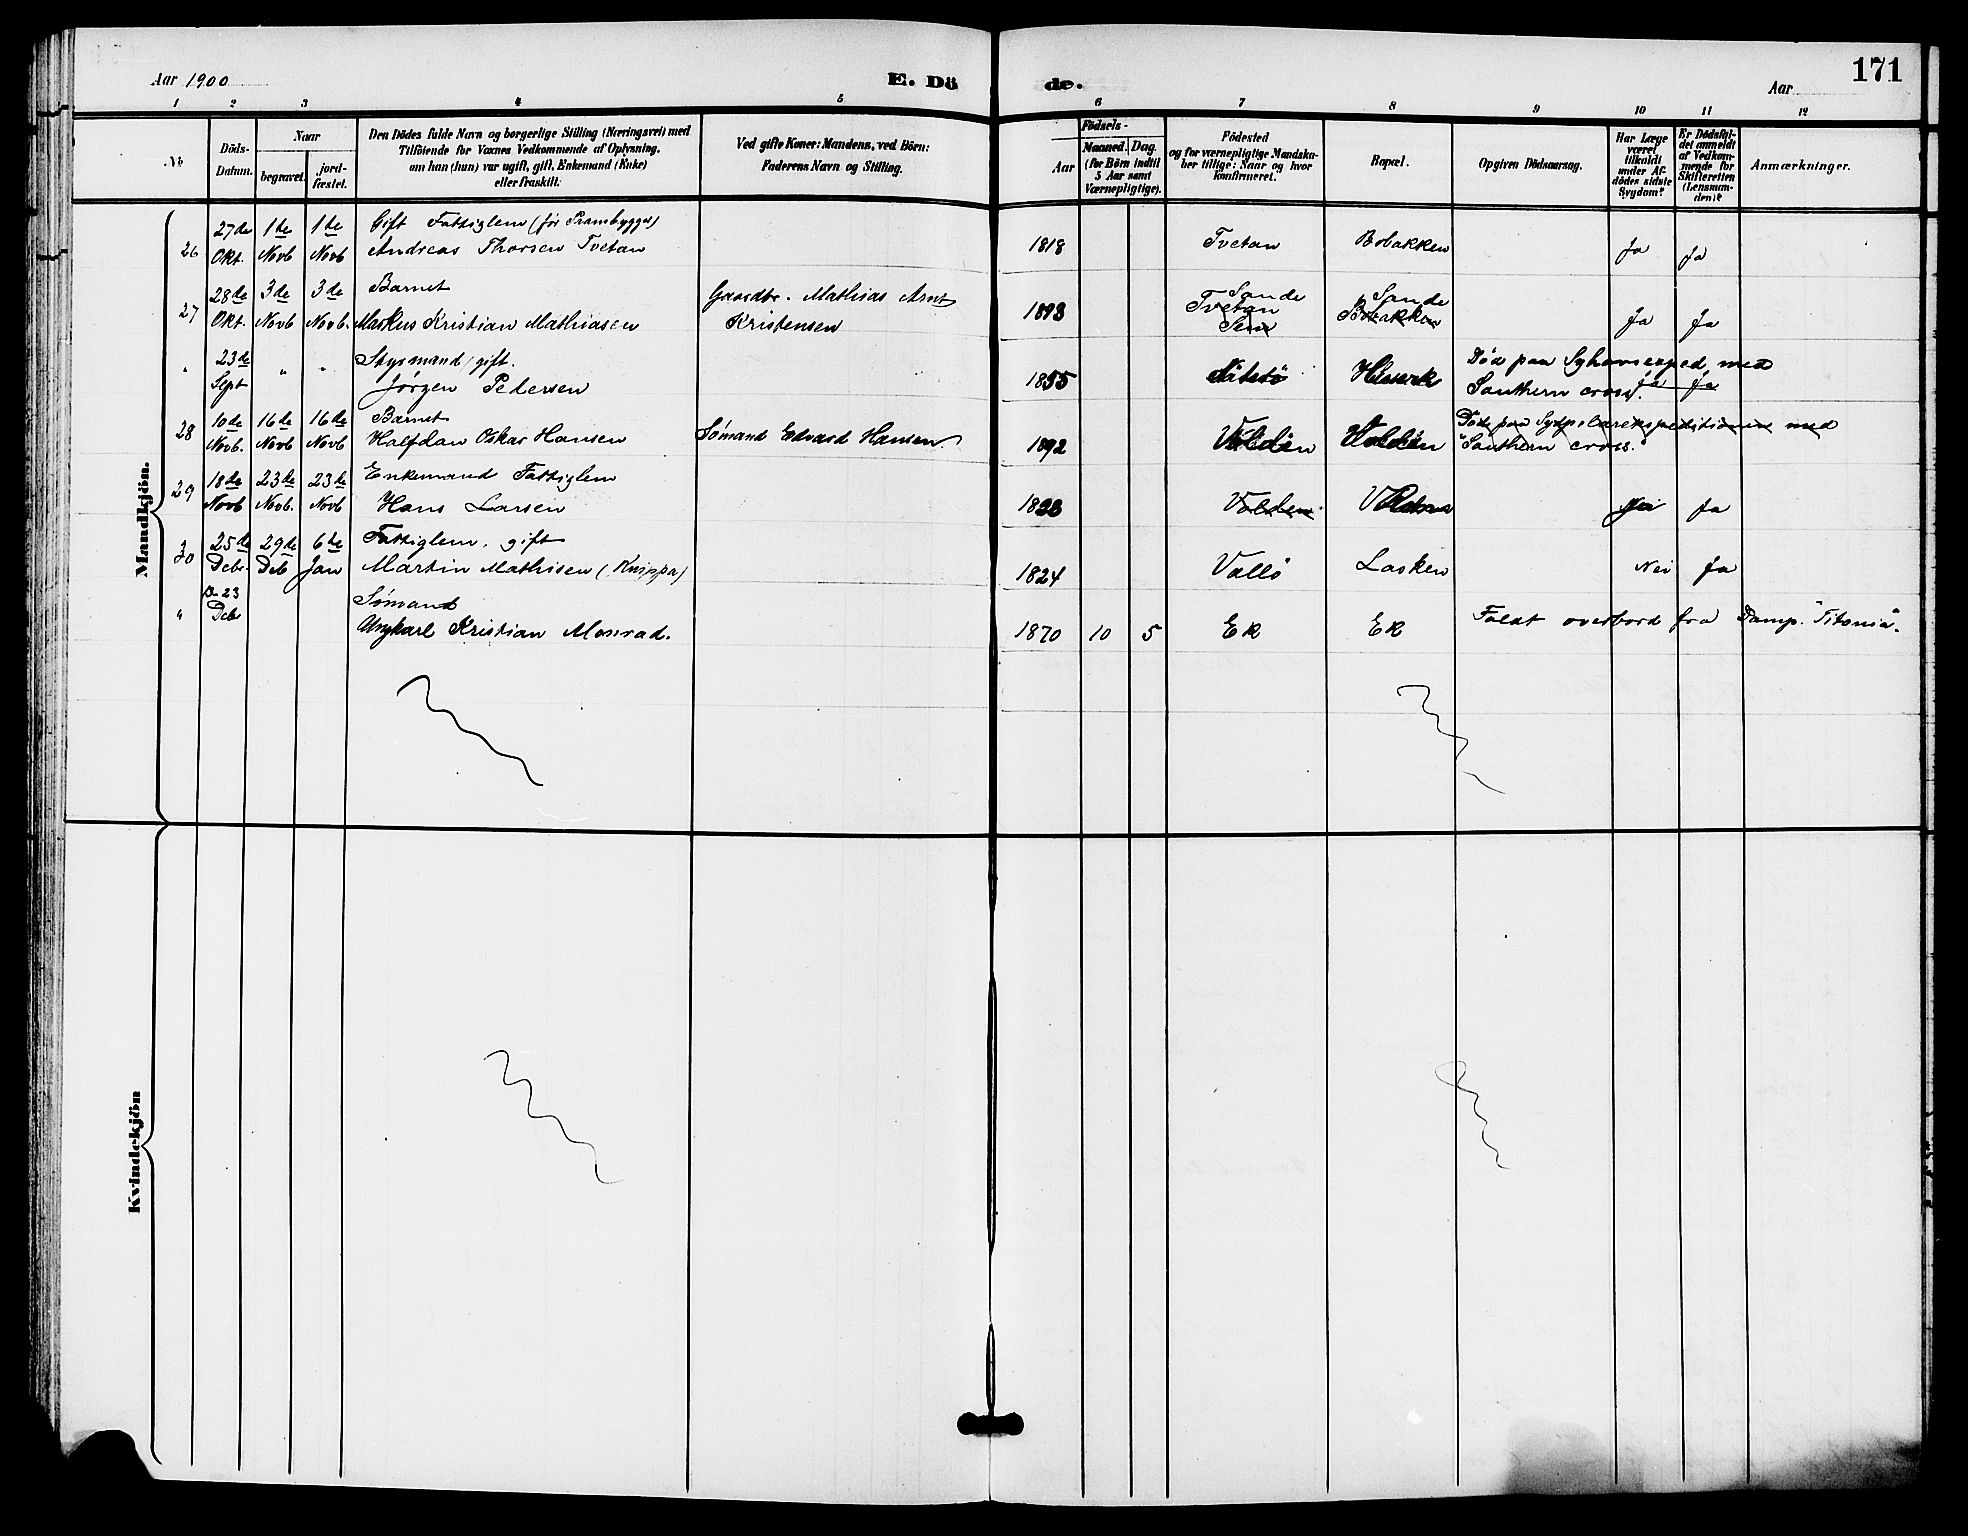 Aar 1900
E. Dö
de.
Aar
171
1 2 3 4 5 6 7 8 9 10 11 12
No
Döds-
Datum.
Naar
begravet.
jord-
fæstet.
Den Dödes fulde Navn og borgerlige Stilling (Næringsvei) med
Tilföiende for Voxnes Vedkommende af Oplysning,
om han (hun) var ugift, gift, Enkemand (Enke)
eller fraskilt.
Ved gifte Koner: Mandens, ved Börn:
Faderens Navn og Stilling.
Födsels-
Aar
Maaned. Dag.
(for Börn indtil
5 Aar samt
Værnepligtige).
Födested
og for værnepligtige Mandska-
ber tillige: Naar og hvor
konfirmeret.
Bopæl.
Opgiven Dödsaarsag.
Har Læge
været
tilkaldt
under Af-
dödes sidste
Sygdom?
Er Dödsfal-
det anmeldt
af Vedkom-
mende for
Skifteretten
(Lensman-
den)?
Anmærkninger.
Mandkjön.
26 27de Okt. 1de Novb 1de Novb Gift Fattiglem (før Prambygger)
Andreas Thorsen Tvetan 1818 Tvetan Bobakken Ja Ja
27 28de Okt. 3de Novb 3de Novb. Barnet Gaardbr. Mathias Arnt Sande Sande
Markus Kristian Mathiasen Kristensen 1893 Tvetan Sem Bobakken Ja Ja
" 23de Sept " " Styrmand, gift. Død paa med
Jørgen Pedersen 1855 Southern cross. Ja Ja
28 10de Novb. 16de Novb 16de Novb Barnet Død paa Sydpolarekspeditionen med
Halfdan Oskar Hansen Sømand Edvard Hansen 1892 Volden Volden "Southern cross."
29 18de Novb 23de Novb. 23de Novb Enkemand Fattiglem
Hans Larsen Volden Nei Ja
30 25de Debr. 29de Deb 6de Jan Fattiglem. gift
Martin Mathisen (Knippa) 1824 Vallö Lasken Nei Ja
" 23 Debr Sømand
Ungkarl Kristian Monrad. 1870 10 5 Ek Ek Faldt overbord fra Damp. "Titania".
Kvindekjön